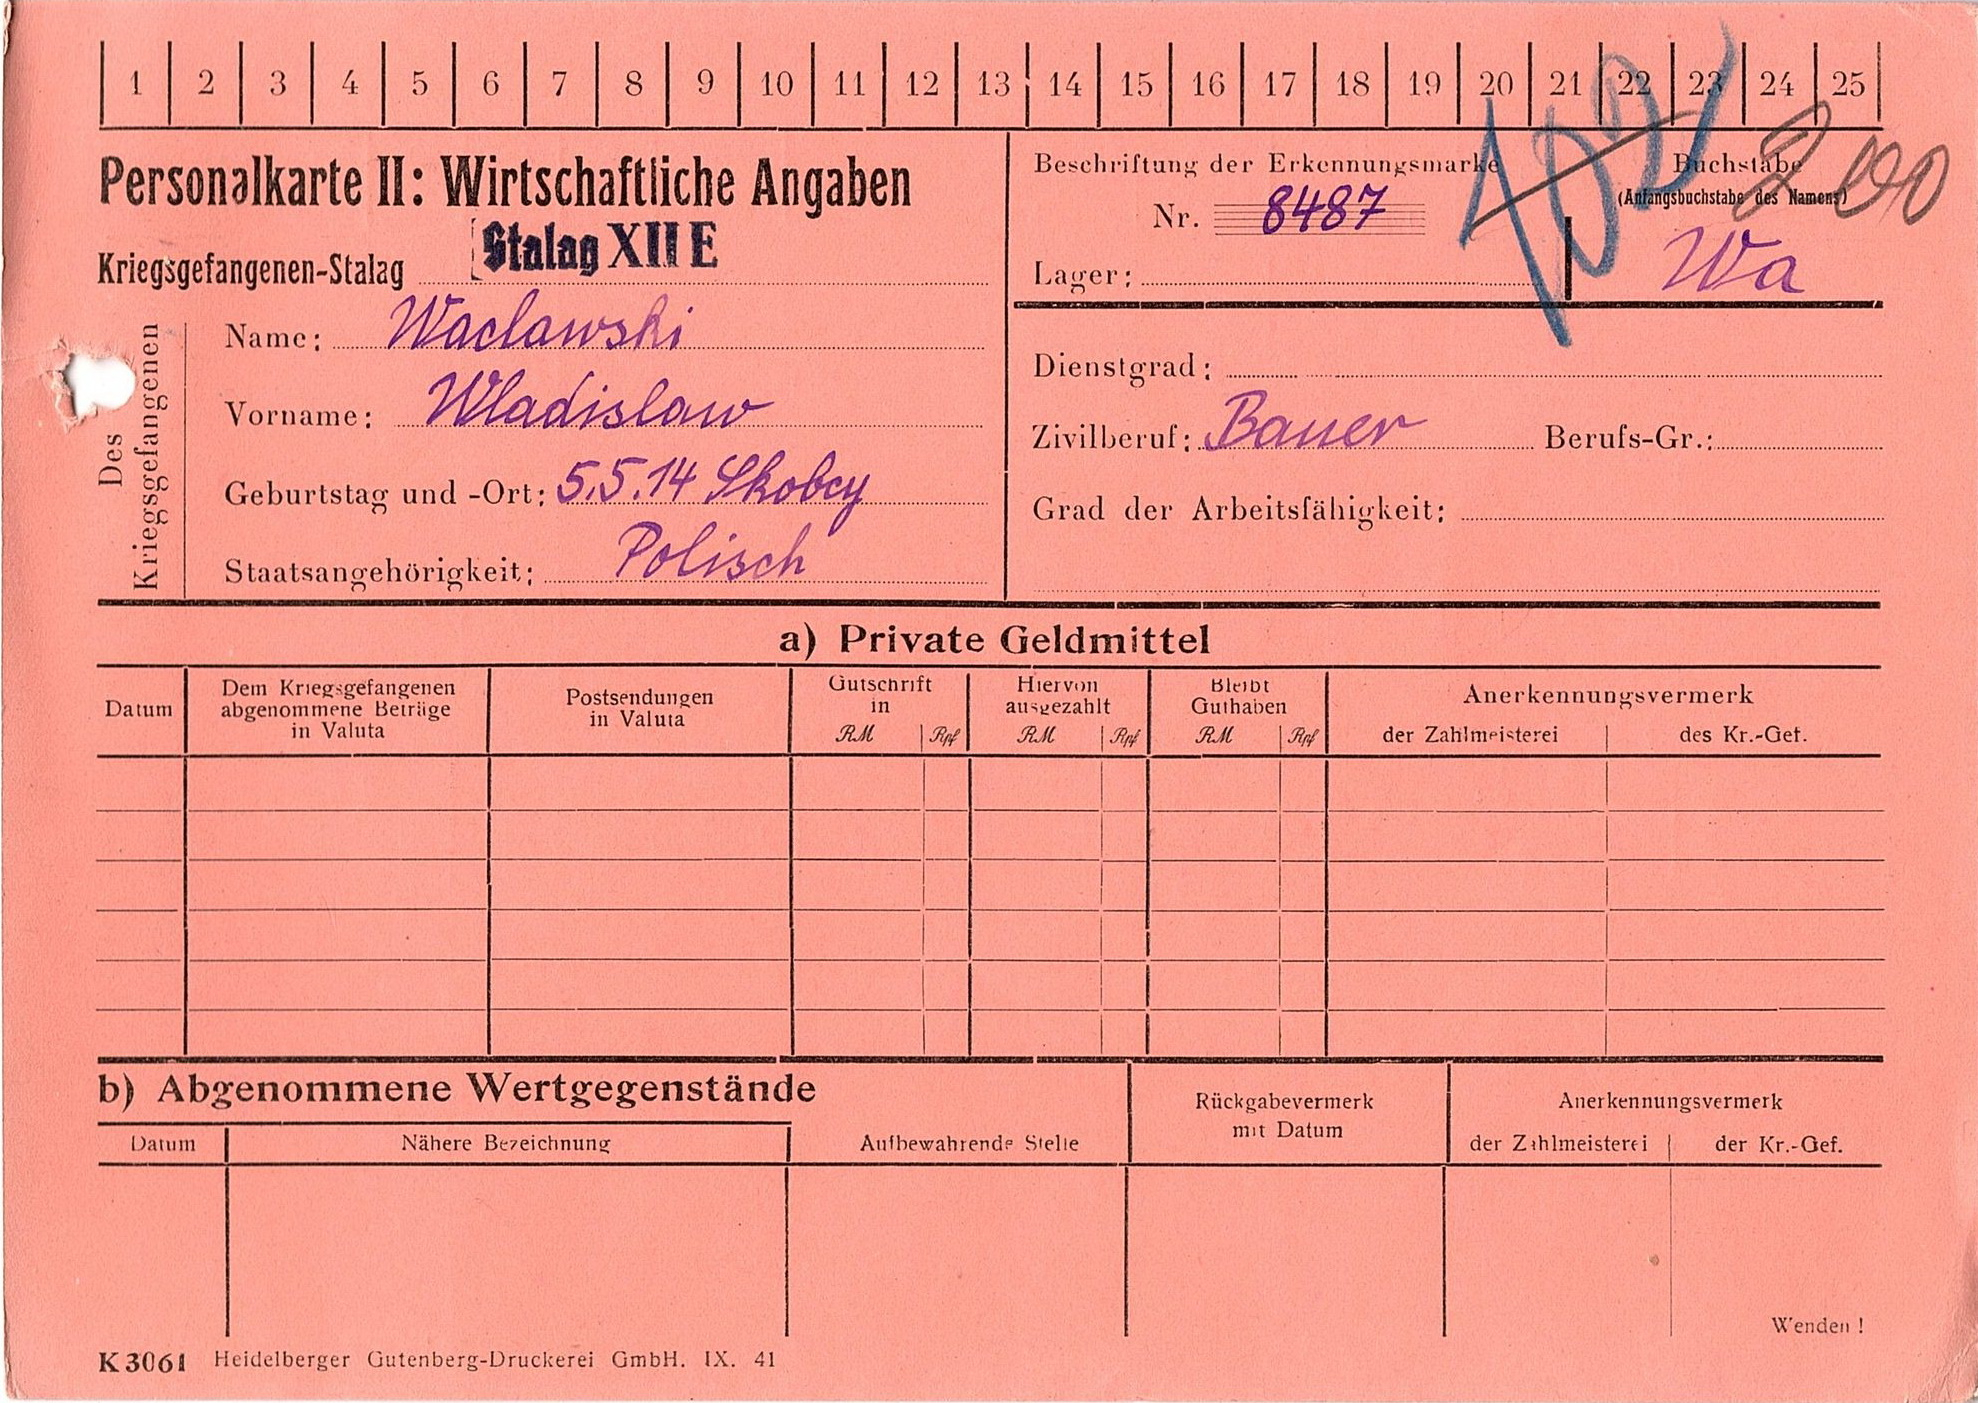 1 2 3 4 5 6 7 8 9 10 11 12 13 14 15 16 17 18 19 20 21 22 23 24 25
Personalkarte II: Wirtschaftliche Angaben
Kriegsgefangenen-Stalag Stalag XII E
Beschriftung der Erkennungsmarke
Nr. 8487
Lager:
Buchstabe
(Anfangsbuchstabe des Namens)
Wa
Des Kriegsgefangenen
Name: Waclawski
Vorname: Wladislaw
Geburtstag und -Ort: 5.5.14 Skobcy
Staatsangehörigkeit: Polisch
Dienstgrad:
Zivilberuf: Bauer Berufs-Gr.:
Grad der Arbeitsfähigkeit:
a) Private Geldmittel
Datum
Dem Kriegsgefangenen
abgenommene Beträge
in Valuta
Postsendungen
in Valuta
Gutschrift
in
RM Rpf
Hiervon
ausgezahlt
RM Rpf
Bleibt
Guthaben
RM Rpf
Anerkennungsvermerk
der Zahlmeisterei des Kr.-Gef.
b) Abgenommene Wertgegenstände
Datum Nähere Bezeichnung Aufbewahrende Stelle
Rückgabevermerk
mit Datum
Anerkennungsvermerk
der Zahlmeisterei der Kr.-Gef.
Wenden!
K 3061 Heidelberger Gutenberg-Druckerei GmbH. IX. 41